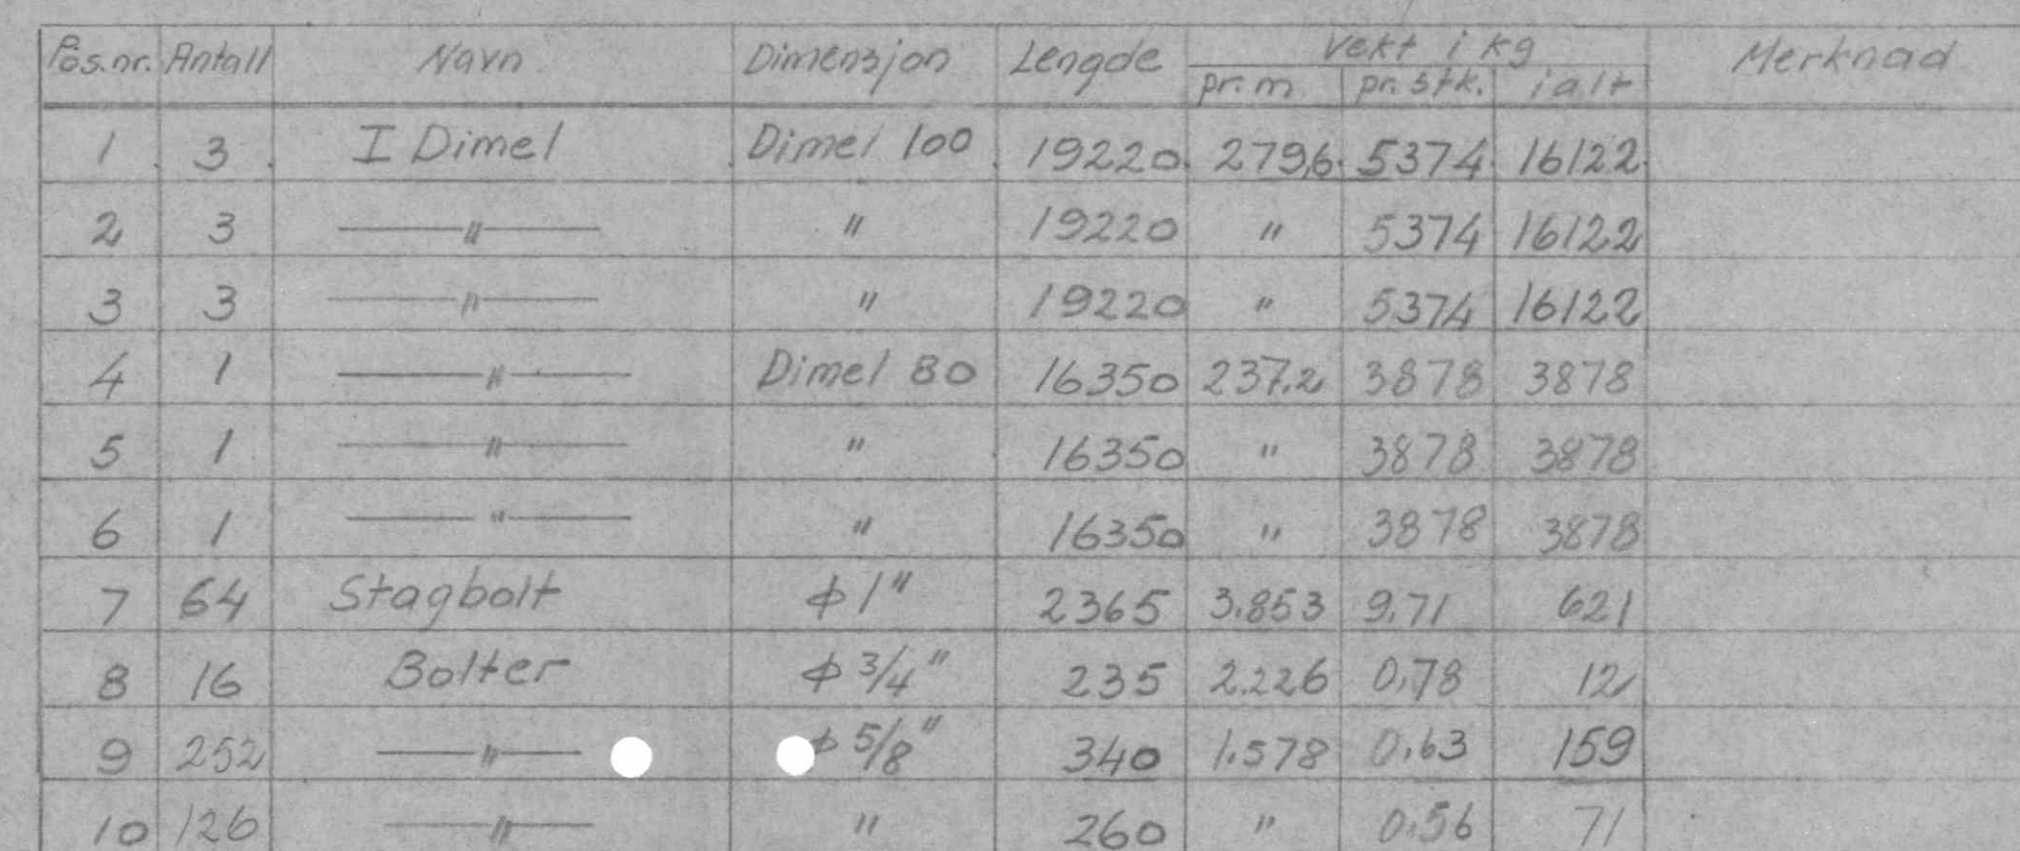 Pos.nr. Antall Navn Dimensjon Lengde Vekt i kg Merknad
pr.m pr.stk. i alt
1 3 I Dimel Dimel 100 19220 279,6 5374 16122
2 3 —〃— 〃 19220 〃 5374 16122
3 3 —〃— 〃 19220 〃 5374 16122
4 1 —〃— Dimel 80 16350 237.2 3878 3878
5 1 —〃— 〃 16350 〃 3878 3878
6 1 —〃— 〃 16350 〃 3878 3878
7 64 Stagbolt ϕ 1" 2365 3.853 9.71 621
8 16 Bolter ϕ 3/4" 235 2.226 0.78 12
9 252 —〃— ϕ 5/8" 340 1.578 0.63 159
10 126 —〃— 〃 260 〃 0.56 71